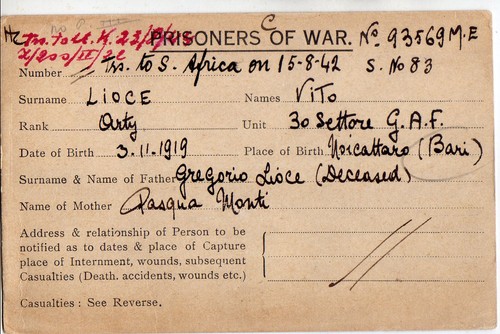 C
PRISONERS OF WAR. No 93569 M.E
Trs. To U.K.
Number Trs. to S. Africa on 15-8-42 S. No 83
Surname LIOCE Names VITO
Rank Arty Unit 30 Settore G.A.F.
Date of Birth 3.11.1919 Place of Birth Noicattaro (Bari)
Surname & Name of Father Gregorio Lioce (Deceased)
Name of Mother Pasqua Monti
Address & relationship of Person to be
notified as to dates & place of Capture
place of Internment, wounds, subsequent
Casualties (Death. accidents, wounds etc.)
Casualties : See Reverse.